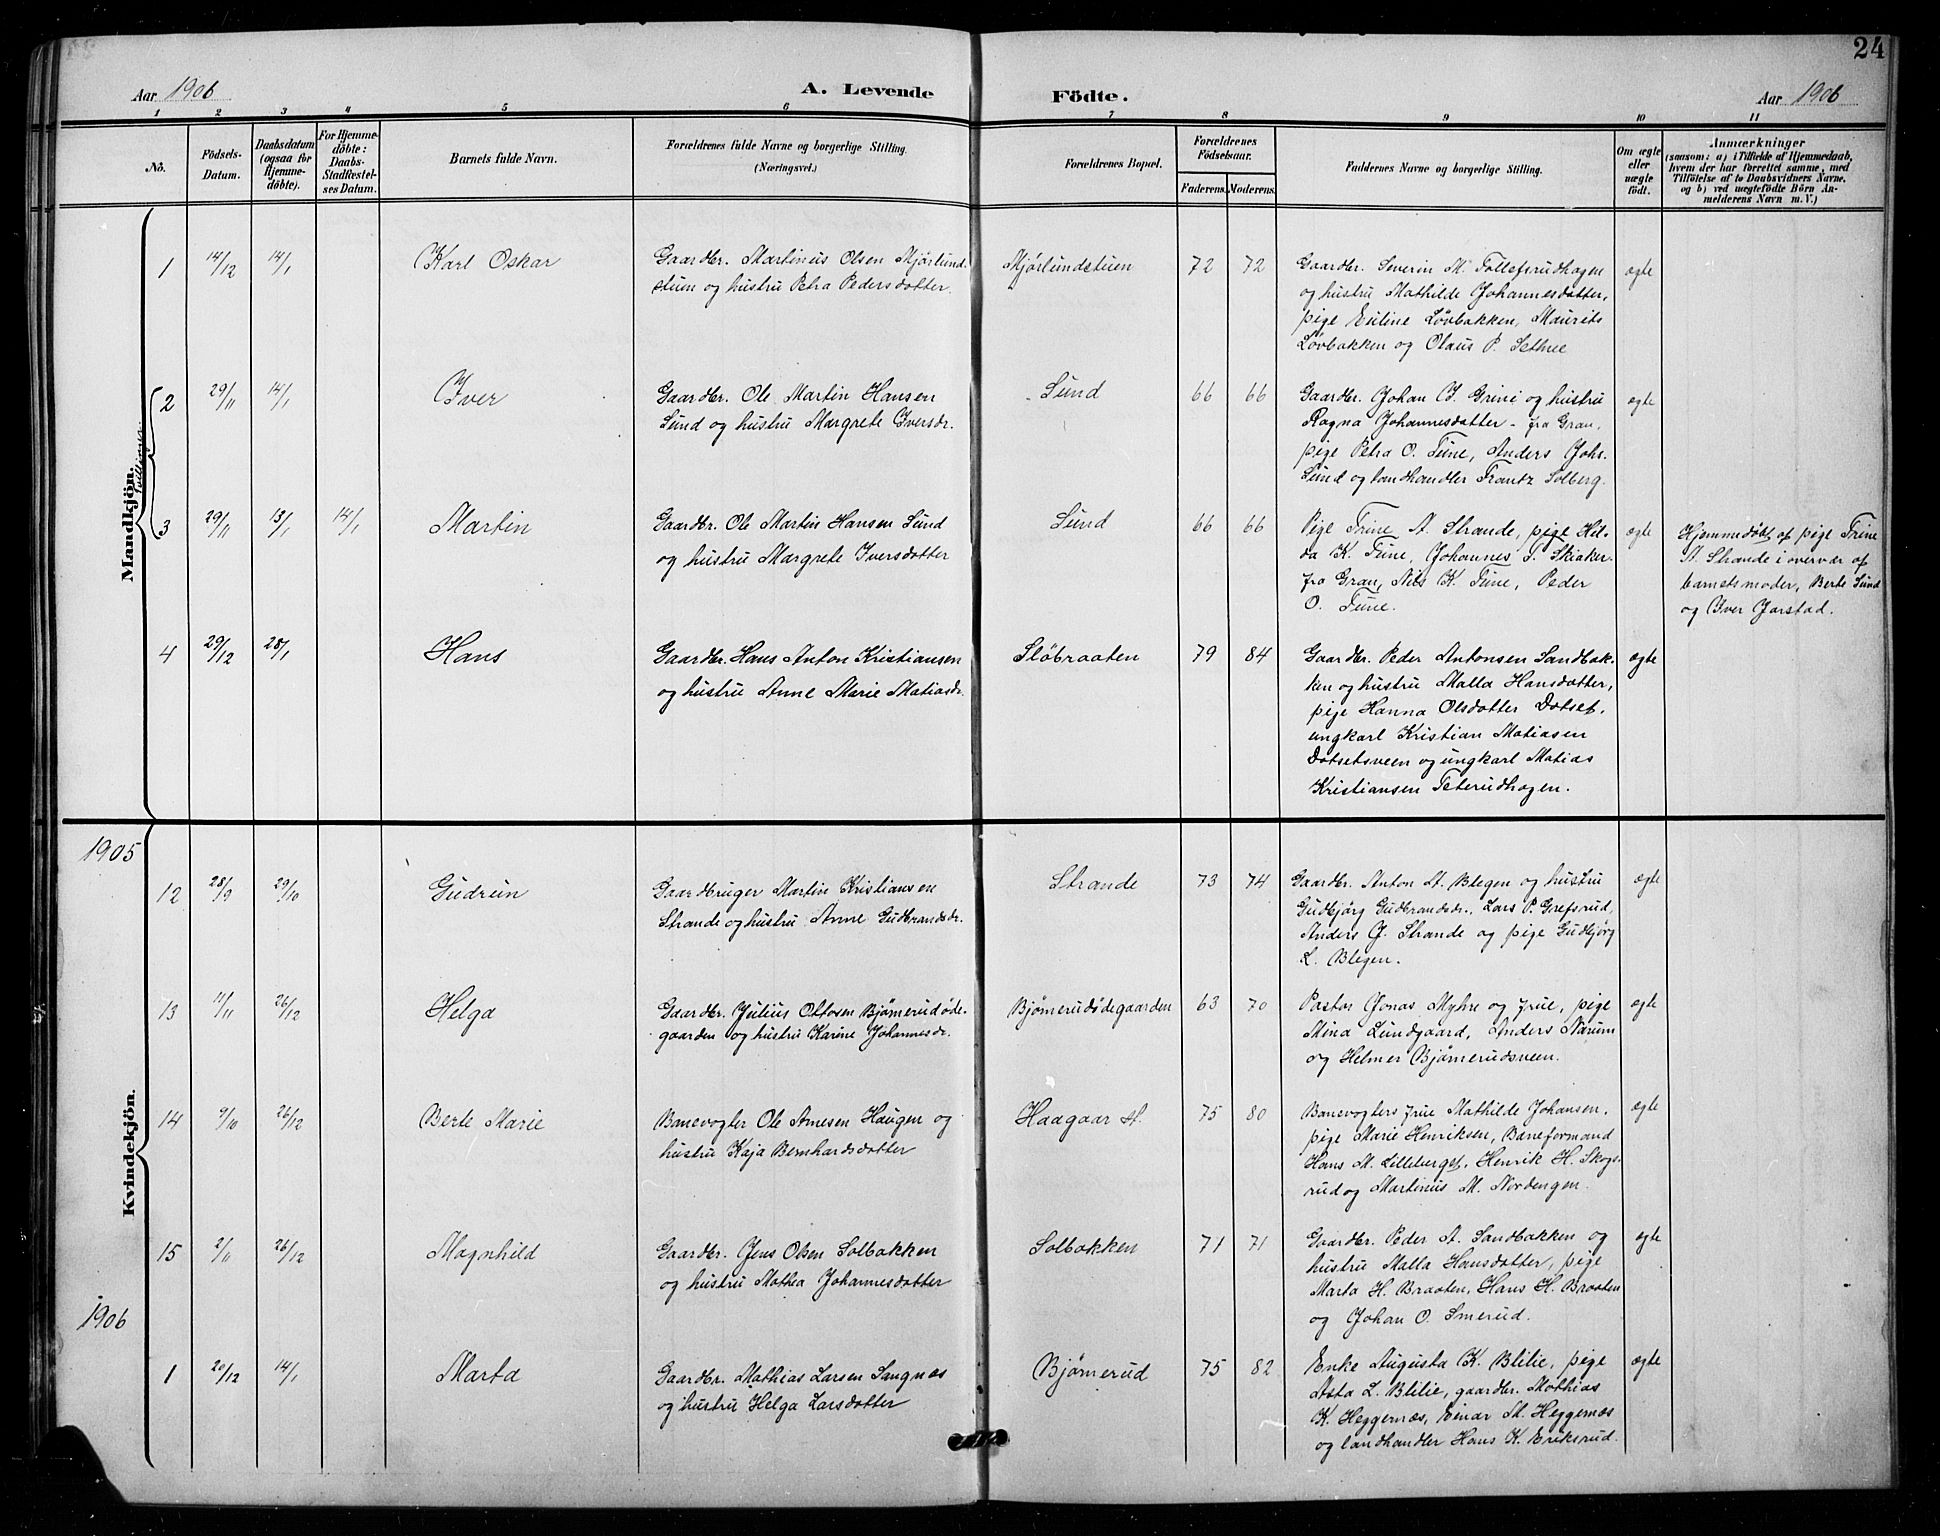 24
Aar 1906
A. Levende
Födte.
Aar 1906
1 2 3 4 5 6 7 8 9 10 11
No.
Födsels-
Datum.
Daabsdatum
(ogsaa for
Hjemme-
döbte).
For Hjemme-
döbte:
Daabs-
Stadfæstel-
ses Datum.
Barnets fulde Navn.
Forældrenes fulde Navne og borgerlige Stilling.
(Næringsvei.)
Forældrenes Bopæl.
Forældrenes
Födselsaar.
Faderens. Moderens.
Faddernes Navne og borgerlige Stilling.
Om ægte
eller
uægte
födt.
Anmærkninger
(saasom: a) i Tilfælde af Hjemmedaab,
hvem der har forrettet samme, med
Tilföielse af to Daabsvidners Navne,
og b) ved uægtefödte Börn An-
melderens Navn m. V.)
Mandkjön.
1 14/12 14/1 Karl Oskar
Gaardbr. Martinus Olsen Mjørlund-
stuen og hustru Petra Pedersdatter.
Mjørlundstuen 72 72
Gaardbr. Severin M. Tollefsrudhagen
og hustru Mathilde Johannesdatter,
pige Euline Løvbakken, Maurits
Løvbakken og Olaus P. Sethne
ægte
Tvillinger
2 29/11 14/1 Iver
Gaardbr. Ole Martin Hansen
Sund og hustru Margrete Iversdr.
Sund 66 66
Gaardbr. Johan I. Grini og hustru
Ragna Johannesdatter - fra Gran,
pige Petra O. Tune, Anders Johs.
Sund og landhandler Frantz Solberg.
ægte
3 29/11 13/1 14/1 Martin
Gaardbr. Ole Martin Hansen Sund
og hustru Margrete Iversdatter
Sund 66 66
Pige Trine A. Strande, pige Hel-
da K. Tune, Johannes T. Skiaker
fra Gran, Nils K. Tune, Peder
O. Tune.
ægte
Hjemmedøbt af pige Trine
A. Strande i overvær af
barnets moder, Berte Sund
og Iver Jarstad.
4 29/12 28/1 Hans
Gaardbr. Hans Anton Kristiansen
og hustru Anne Marie Matiasdr.
Sløbraaten 79 84
Gaardbr. Peder Antonsen Sandbak-
ken og hustru Malla Hansdatter,
pige Hanna Olsdatter Dotset,
ungkarl Kristian Matiasen
Dotsetsveen og ungkarl Matias
Kristiansen Teterudhagen.
ægte
1905
Kvindekjön.
12 28/9 29/10 Gudrun
Gaardbruger Martin Kristiansen
Strande og hustru Anne Gudbrandsdr.
Strande 73 74
Gaardbr. Anton A. Blegen og hustru
Gudbjörg Gudbrandsdr., Lars P. Grefsrud,
Anders G. Strande og pige Gudbjørg
L. Blegen.
ægte
13 11/11 26/12 Helga
Gaardbr. Julius Ottosen Bjømerudøde-
gaarden og hustru Karine Johannesdr.
Bjømerudødegaarden 63 70
Pastor Jonas Myhre og frue, pige
Mina Lundgaard, Anders Narum
og Helmer Bjømerudsveen.
ægte
14 9/10 26/12 Berte Marie
Banevogter Ole Arnesen Haugen og
hustru Kaja Bernhardsdatter
Haagaar st. 75 80
Banevogters frue Mathilde Johansen,
pige Marie Henriksen, Baneformand
Hans M. Lilleberget, Henrik H. Skogs-
rud og Martinus M. Nordengen.
ægte
15 2/11 26/12 Magnhild
Gaardbr. Jens Olsen Solbakken
og hustru Mathea Johannesdatter
Solbakken 71 71
Gaardbr. Peder A. Sandbakken og
hustru Malla Hansdatter, pige
Marta H. Braaten, Hans H. Braaten
og Johan O. Smerud.
ægte
1906
1 20/12 14/1 Marta
Gaardbr. Mathias Larsen Sangnæs
og hustru Helga Larsdatter
Bjømerud 75 82
Enke Augusta K. Blilie, pige
Asta L. Blilie, gaardbr. Mathias
K. Heggernæs, Einar M. Heggernæs
og landhandler Hans K. Eriksrud.
ægte